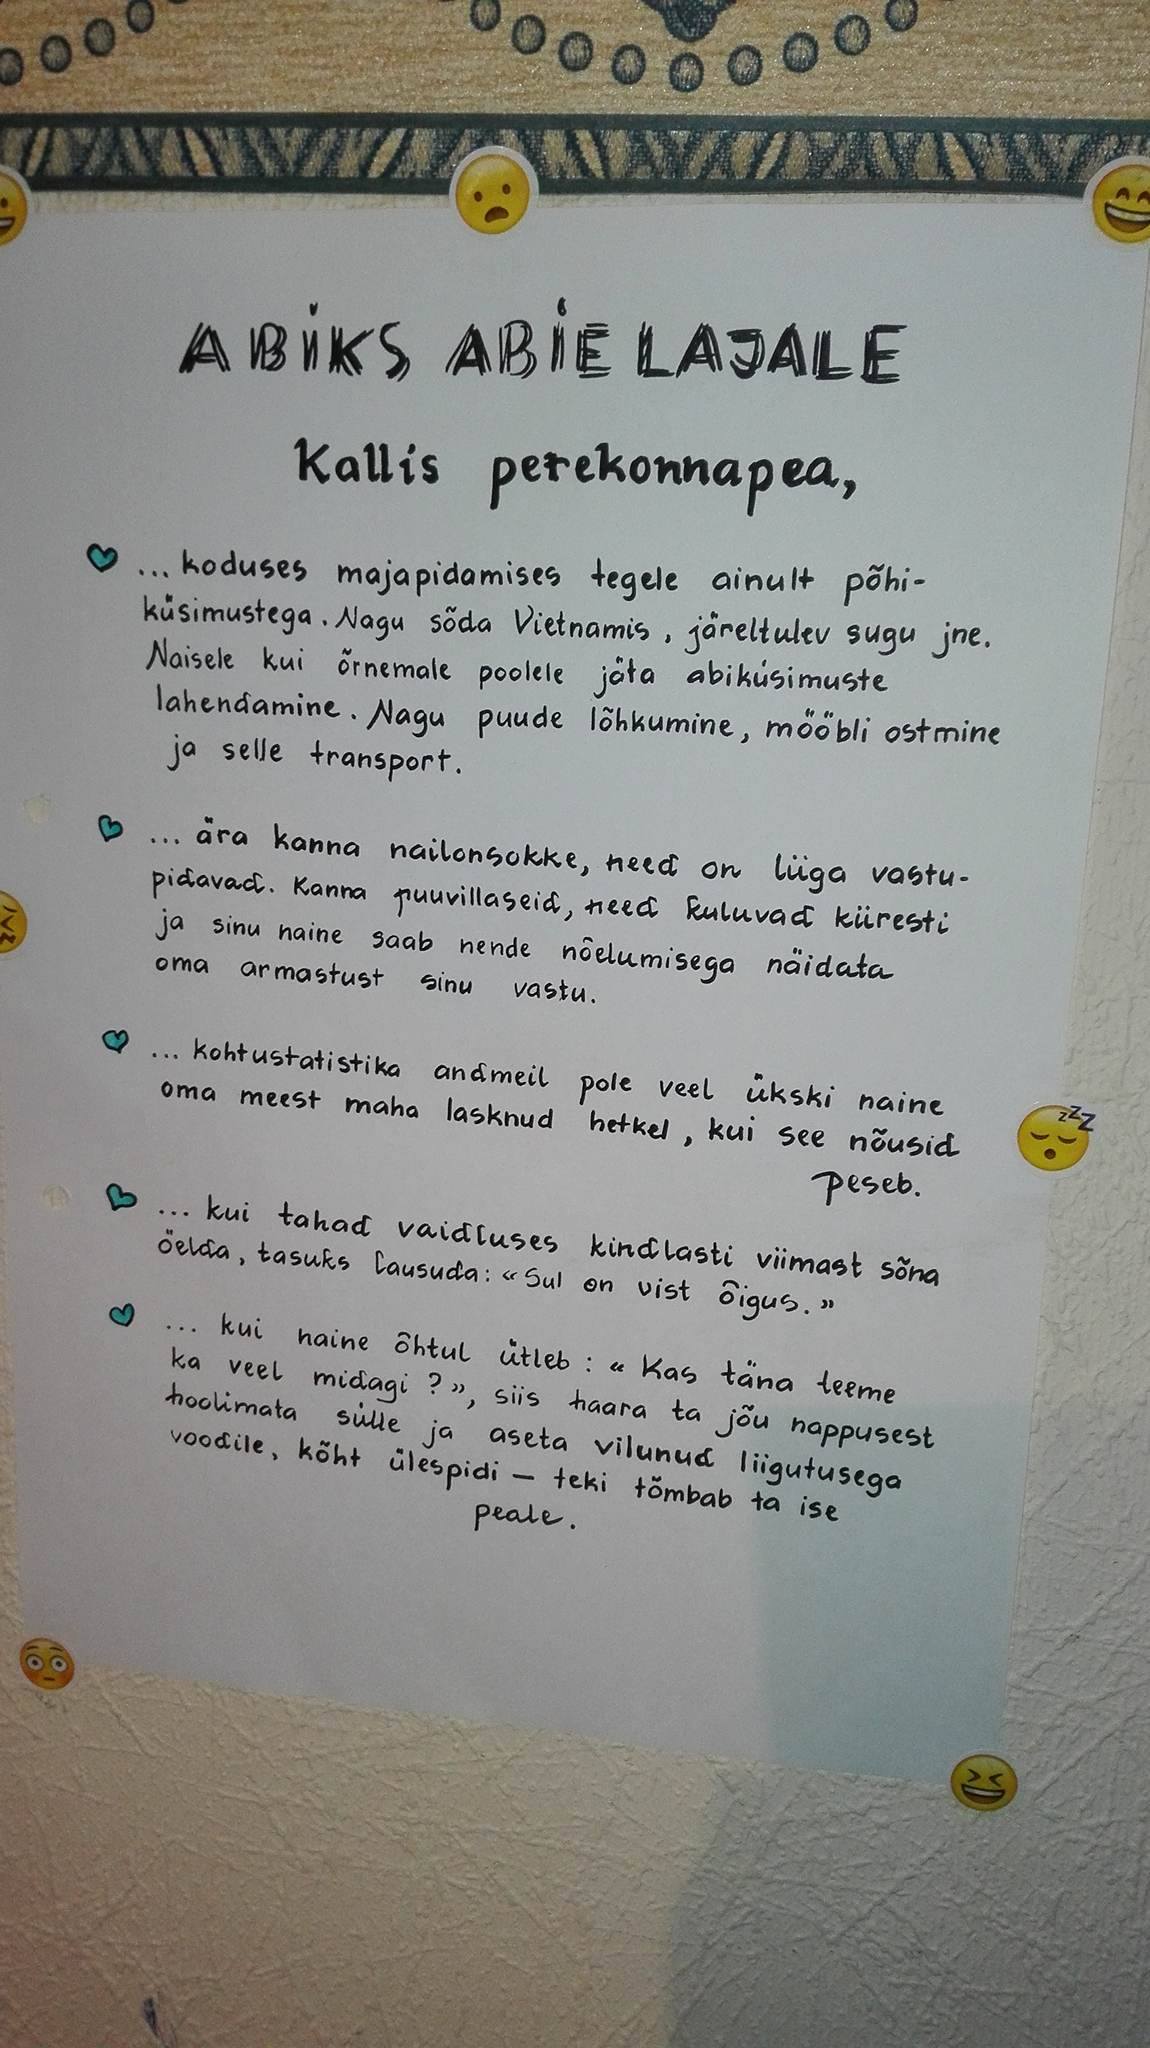 ABIKS ABIELAJALE
Kallis perekonnapea,
... koduses majapidamises tegele ainult põhi-
küsimustega. Nagu sõda Vietnamis, järeltulev sugu jne.
Naisele kui õrnemale poolele jäta abiküsimuste
lahendamine. Nagu puude lõhkumine, mööbli ostmine
ja selle transport.
... ära kanna nailonsokke, need on liiga vastu-
pidavad. Kanna puuvillaseid, need kuluvad kiiresti
ja sinu naine saab nende nõelumisega näidata
oma armastust sinu vastu.
... kohtustatistika andmeil pole veel ükski naine
oma meest maha lasknud hetkel, kui see nõusid
peseb.
... kui tahad vaidluses kindlasti viimast sõna
öelda, tasuks lausuda: «Sul on vist õigus.»
... kui naine õhtul ütleb: «Kas täna teeme
ka veel midagi?», siis haara ta jõu nappusest
hoolimata sülle ja aseta vilunud liigutusega
voodile, kõht ülespidi – teki tõmbab ta ise
peale.
zzZ